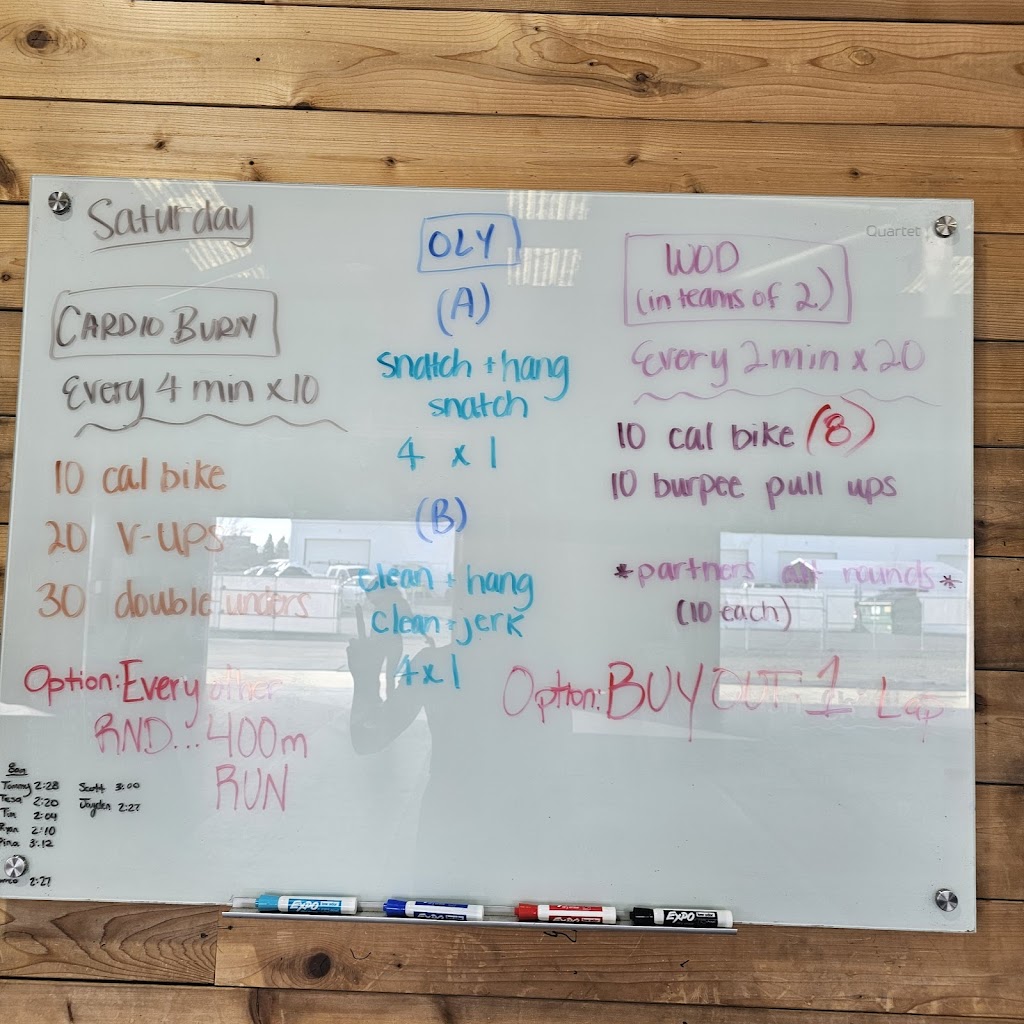 Saturday
Quartet
CARDIO BURN
Every 4 min x10
10 cal bike
20 V-UPS
30 double unders
Option: Every other
RND... 400m
RUN
OLY
(A)
snatch + hang
snatch
4 x 1
(B)
clean + hang
clean + jerk
4x1
WOD
(in teams of 2)
Every 2min x 20
10 cal bike (8)
10 burpee pull ups
*partners alt rounds*
(10 each)
Option: BUY OUT 1 Lap
Tommy 2:28
Tesa 2:20
Tim 2:04
Ryan 2:10
3:12
2:27
Scott 3:00
Jayden 2:27
EXPO
EXPO
EXPO